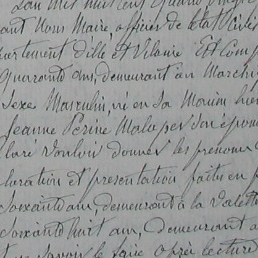 L'an mil huit cent quarante
nous Maire, officier de l'état Civil
département d'Ille et Vilaine Est comp
quarante ans, demeurant au March
Sexe Masculin, né en sa Maison hier
Jeanne Perine Malapes son épous
laré vouloir donner les prénoms
claration et présentation faites en p
Soixante ans, demeurant à la Valette
Soixante huit ans, demeurant à
savoir le faire après lecture